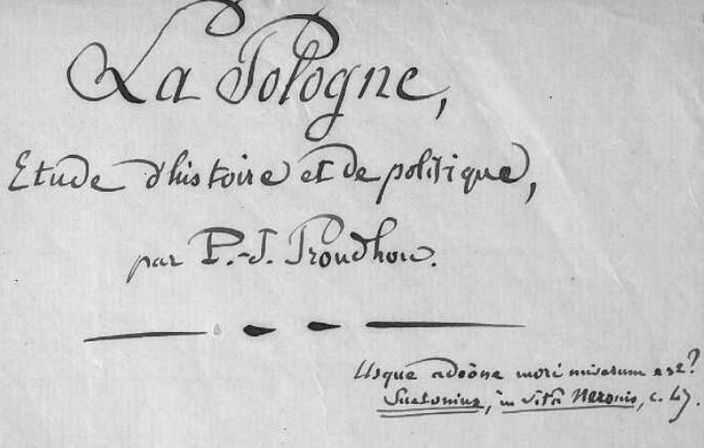 La Pologne,
Etude d'histoire et de politique,
par P.-J. Proudhon.
Usque adeône mori miserum est?
Suetonius, in vitâ Neronis, c. 47.